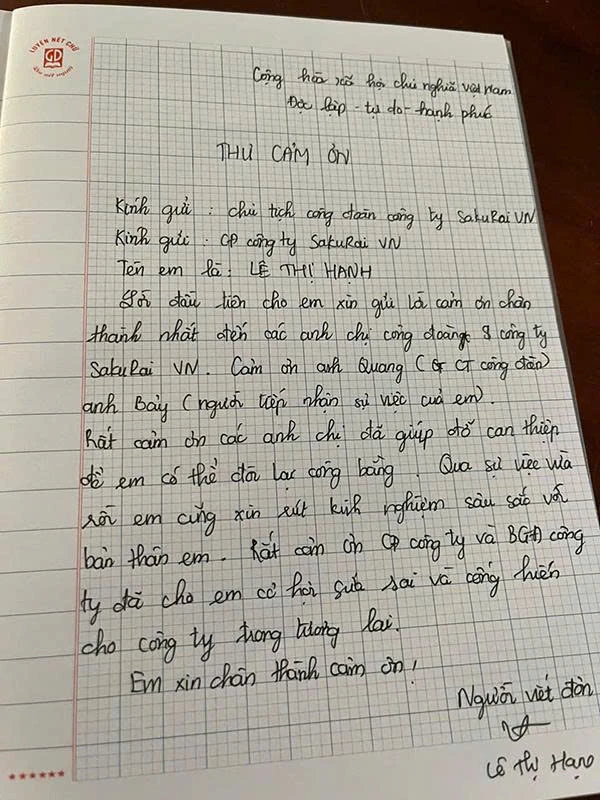 LUYỆN NÉT CHỮ
GD
Rèn nết người
Cộng hòa xã hội chủ nghĩa việt Nam
Độc lập - tự do - hạnh phúc
THƯ CẢM ƠN
Kính gửi : chủ tịch công đoàn công ty SakuRai VN
Kính gửi : CĐ công ty SakuRai VN
Tên em là : LÊ THỊ HẠNH
Lời đầu tiên cho em xin gửi lời cảm ơn chân
thành nhất đến các anh chị công đoàn công ty
SakuRai VN. Cảm ơn anh Quang ( CT công đoàn)
anh Bảy ( người tiếp nhận sự việc của em).
Rất cảm ơn các anh chị đã giúp đỡ can thiệp
để em có thể đòi lại công bằng. Qua sự việc vừa
rồi em cũng xin rút kinh nghiệm sâu sắc với
bản thân em. Rất cảm ơn CĐ công ty và BGĐ công
ty đã cho em cơ hội sửa sai và cống hiến
cho công ty trong tương lai.
Em xin chân thành cảm ơn!
Người viết đơn
Lê Thị Hạnh